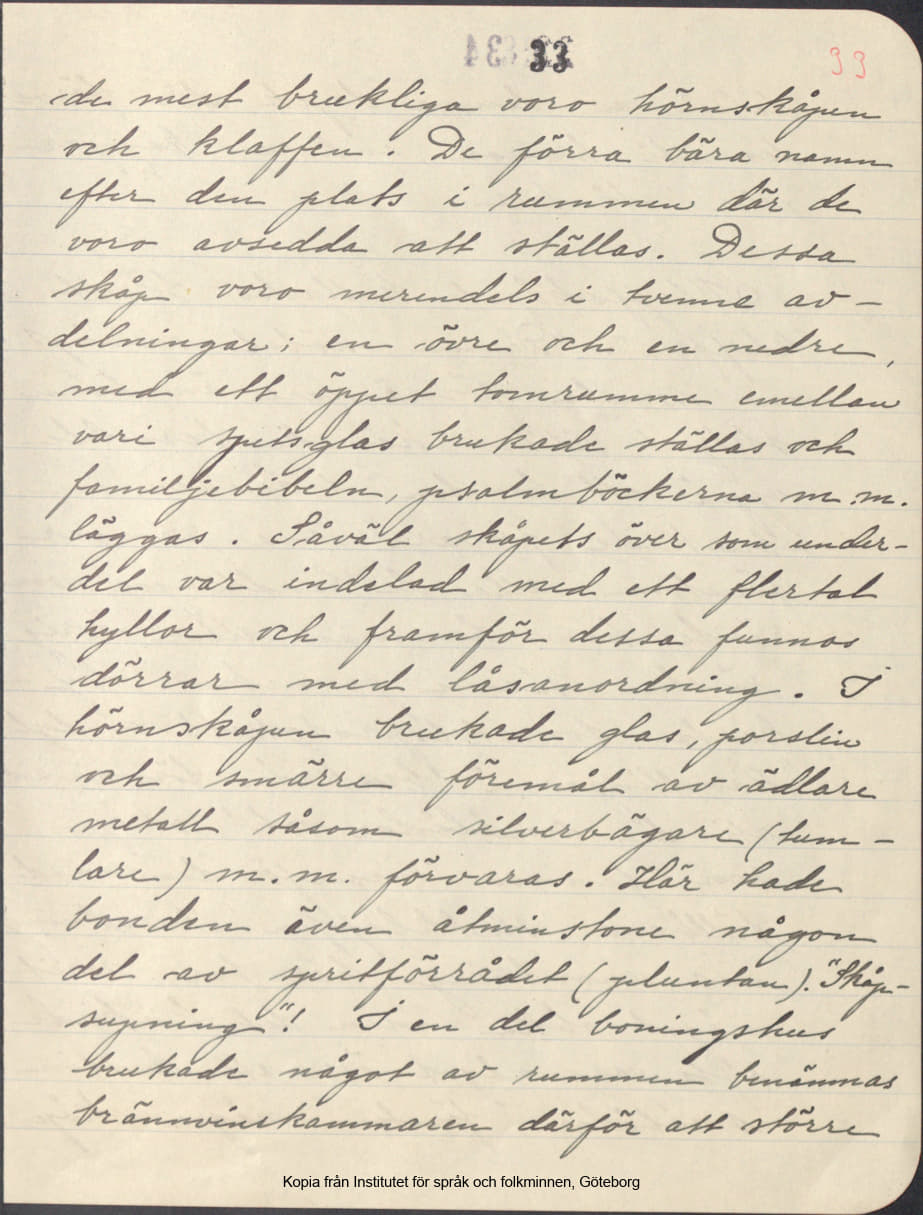 33
33
de mest brukliga voro hörnskåpen
och klaffen. De förra bära namn
efter den plats i rummen där de
voro avsedda att ställas. Dessa
skåp voro merendels i tvenne av-
delningar; en övre och en nedre,
med ett öppet tomrumme emellan
vari spetsglas brukade ställas och
familjebibeln, psalmböckerna m.m.
läggas. Såväl skåpets över som under-
del var indelad med ett flertal
hyllor och framför dessa funnos
dörrar med låsanordning. I
hörnskåpen brukade glas, porslin
och smärre föremål av ädlare
metall såsom silverbägare (tum-
lare) m.m. förvaras. Här hade
bonden även åtminstone någon
del av spritförrådet (pluntan). "Skåp-
supning"! I en del boningshus
brukade något av rummen benämnas
brännvinskammaren därför att större
Kopia från Institutet för språk och folkminnen, Göteborg